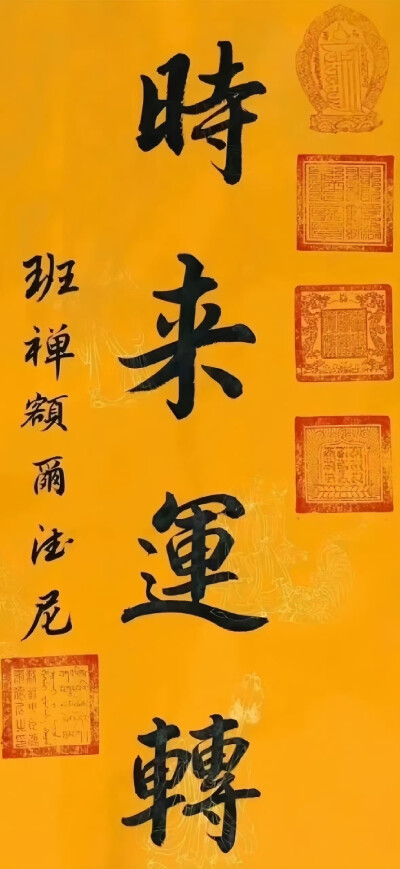 時来運轉
班禅額爾德尼